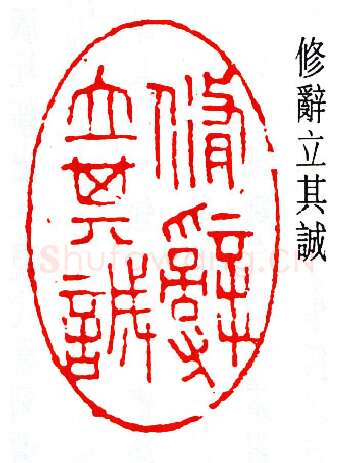 修辭立其誠
修辭
立其誠
Shufawang.CN